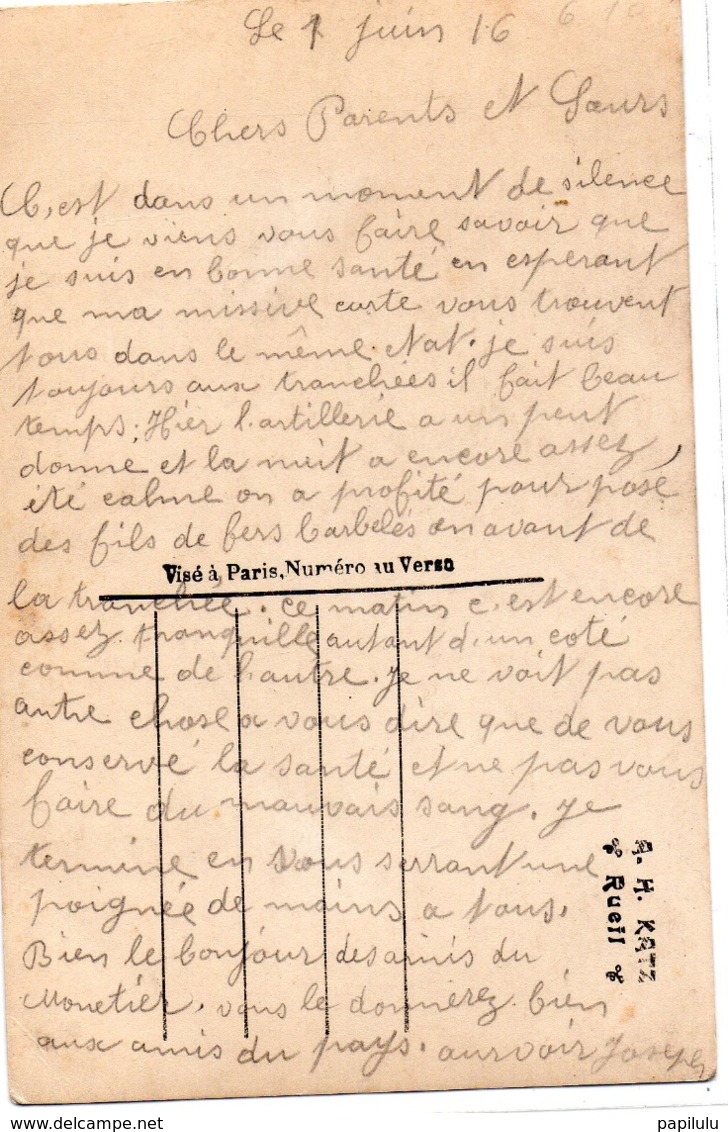 Le 1 juin 16
Chers Parents et Soeurs
C'est dans un moment de silence
que je viens vous faire savoir que
je suis en bonne santé en esperant
que ma missive carte vous trouvent
tous dans le même etat. je suis
toujours aux tranchées il fait beau
temps; Hier l'artillerie a un peut
donne et la nuit a encore assez
été calme on a profité pour posé
des fils de fers barbelés en avant de
Visé à Paris, Numéro au Verso
la tranchée. ce matin c'est encore
assez tranquille autant d'un coté
comme de l'autre. Je ne voit pas
autre chose a vous dire que de vous
conservé la santé et ne pas vous
faire du mauvais sang. Je
termine en vous serrant une
poignée de mains a tous.
Bien le bonjour des amis du
Monetier. vous le donnerez bien
aux amis du pays. aurvoir Joseph
A. H. KATZ
Rueil
papilulu